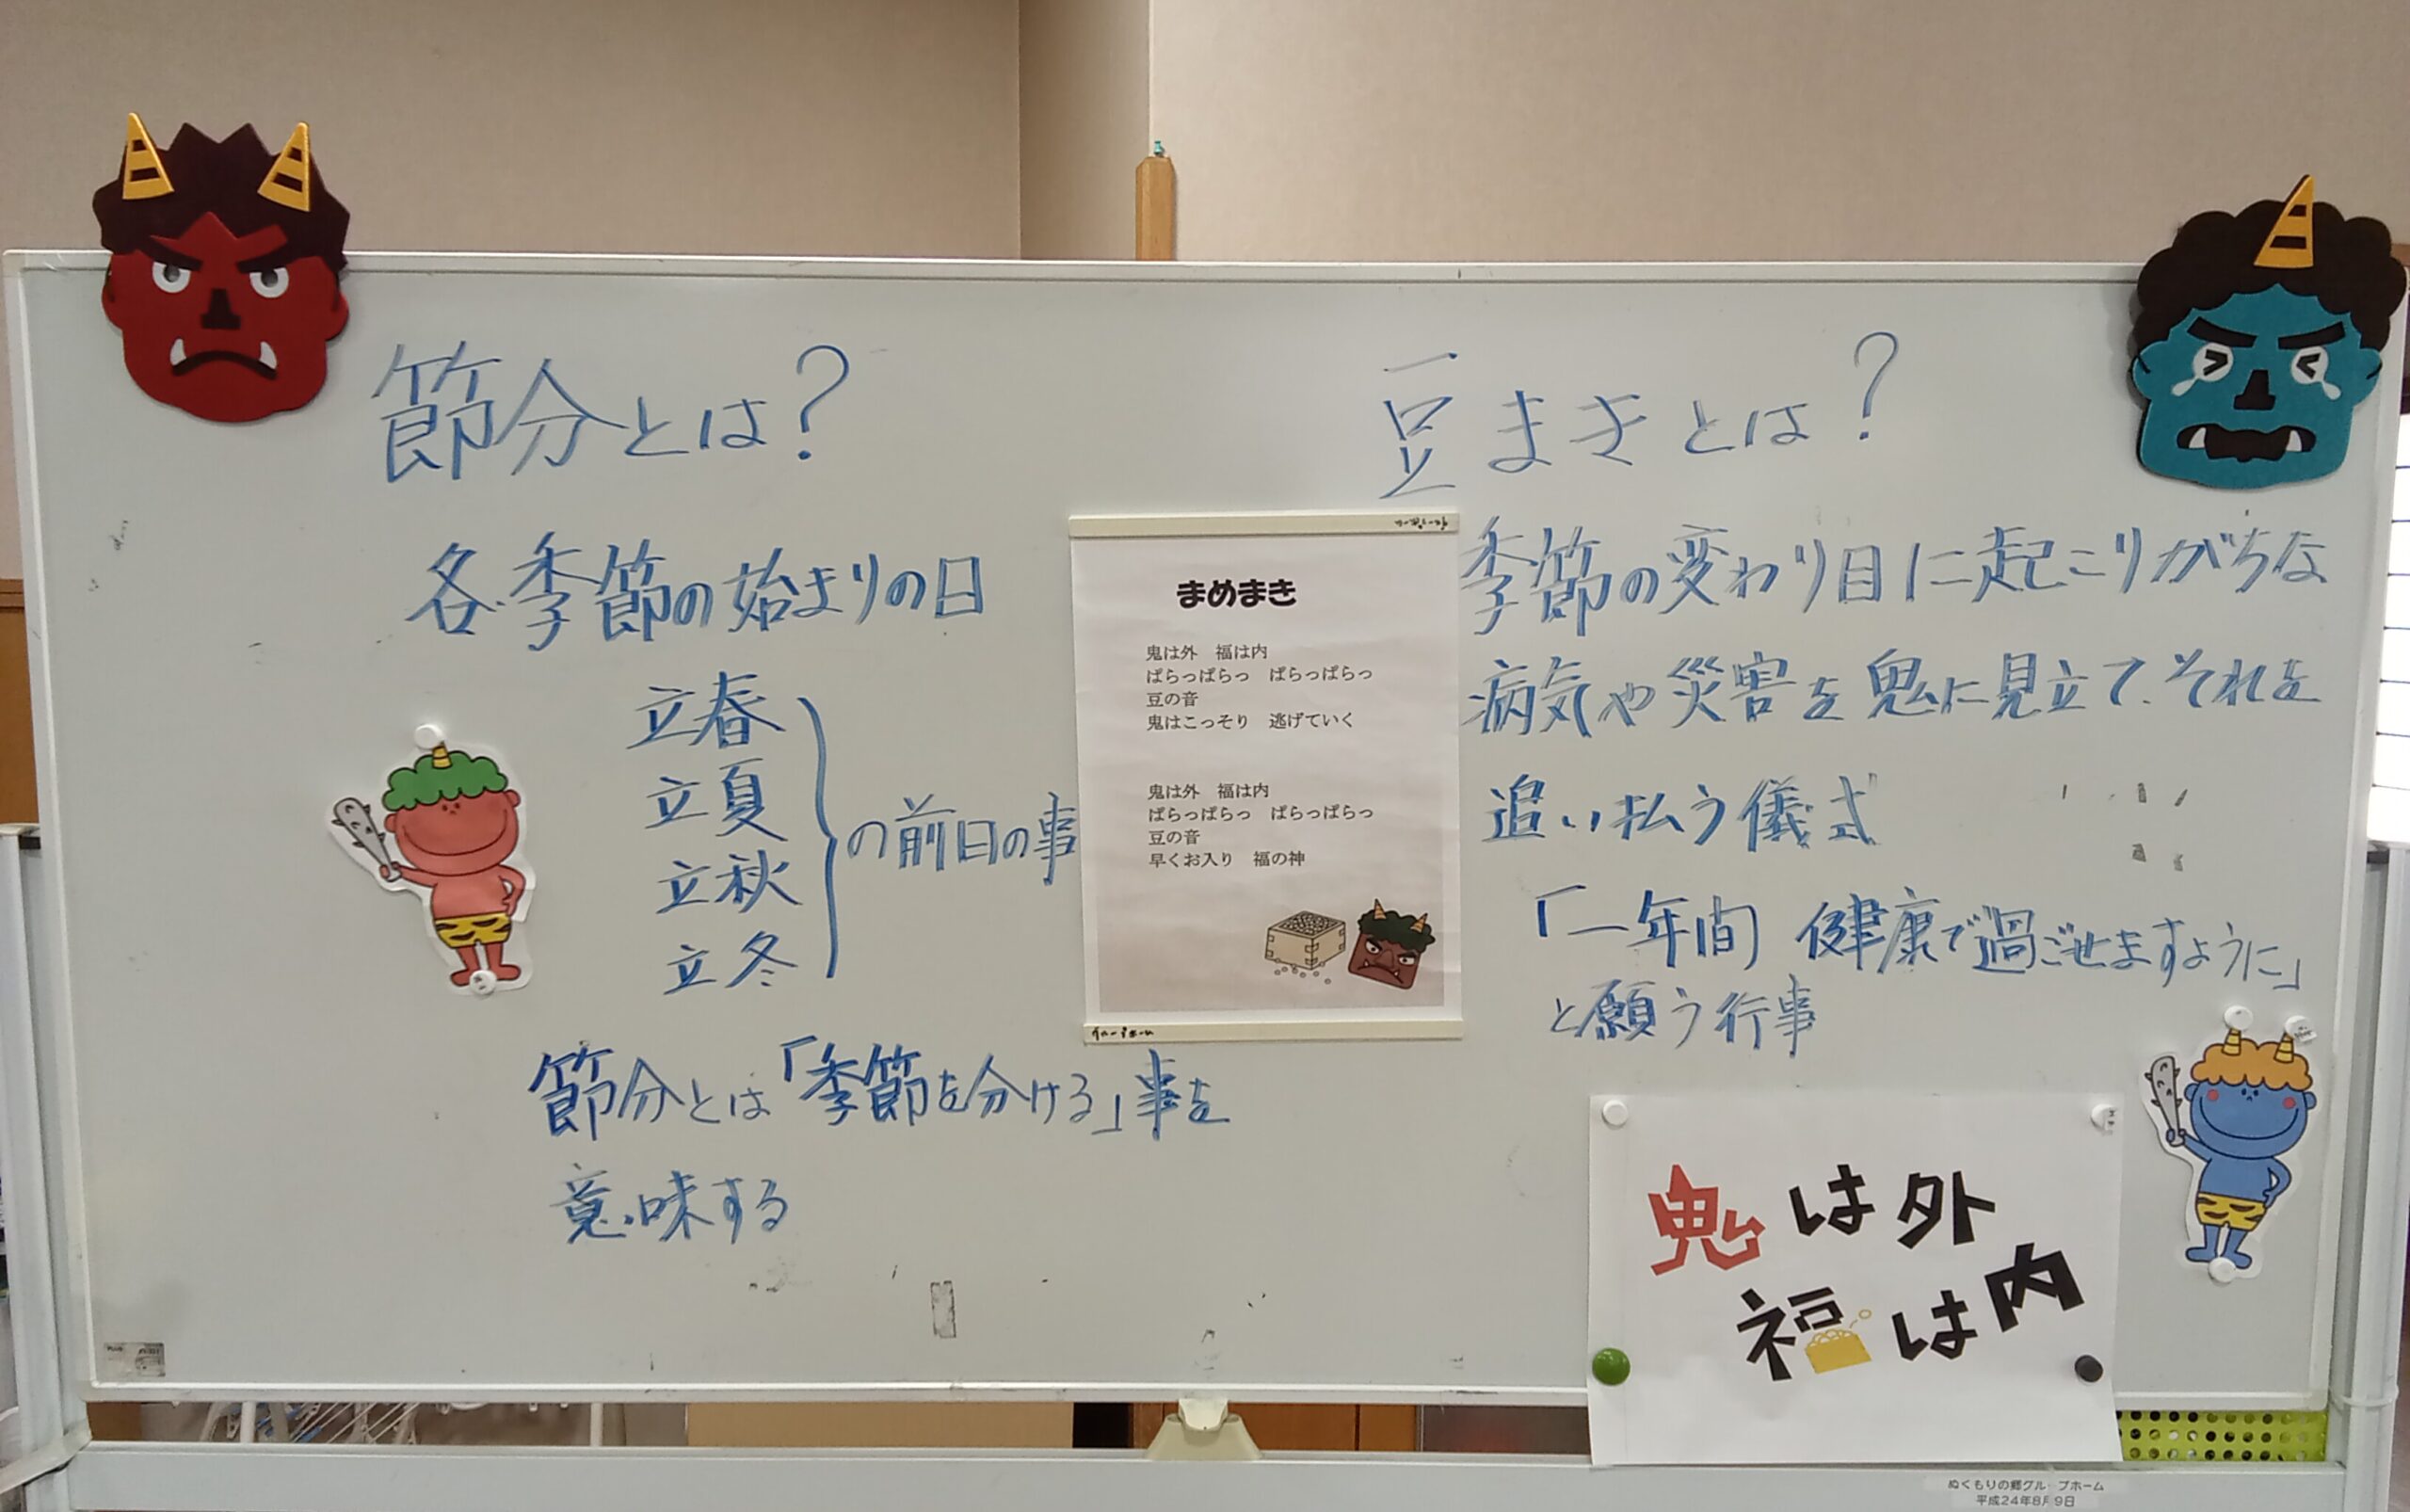 節分とは?
各季節の始まりの日
立春
立夏
立秋
立冬
の前日の事
節分とは「季節を分ける」事を
意味する
まめまき
鬼は外　福は内
ぱらっぱらっ　ぱらっぱらっ
豆の音
鬼はこっそり　逃げていく
鬼は外　福は内
ぱらっぱらっ　ぱらっぱらっ
豆の音
早くお入り　福の神
豆まきとは?
季節の変わり目に起こりがちな
病気や災害を鬼に見立て、それを
追い払う儀式
「一年間 健康で過ごせますように」
と願う行事
鬼は外
福は内
ぬくもりの郷グループホーム
平成24年8月9日